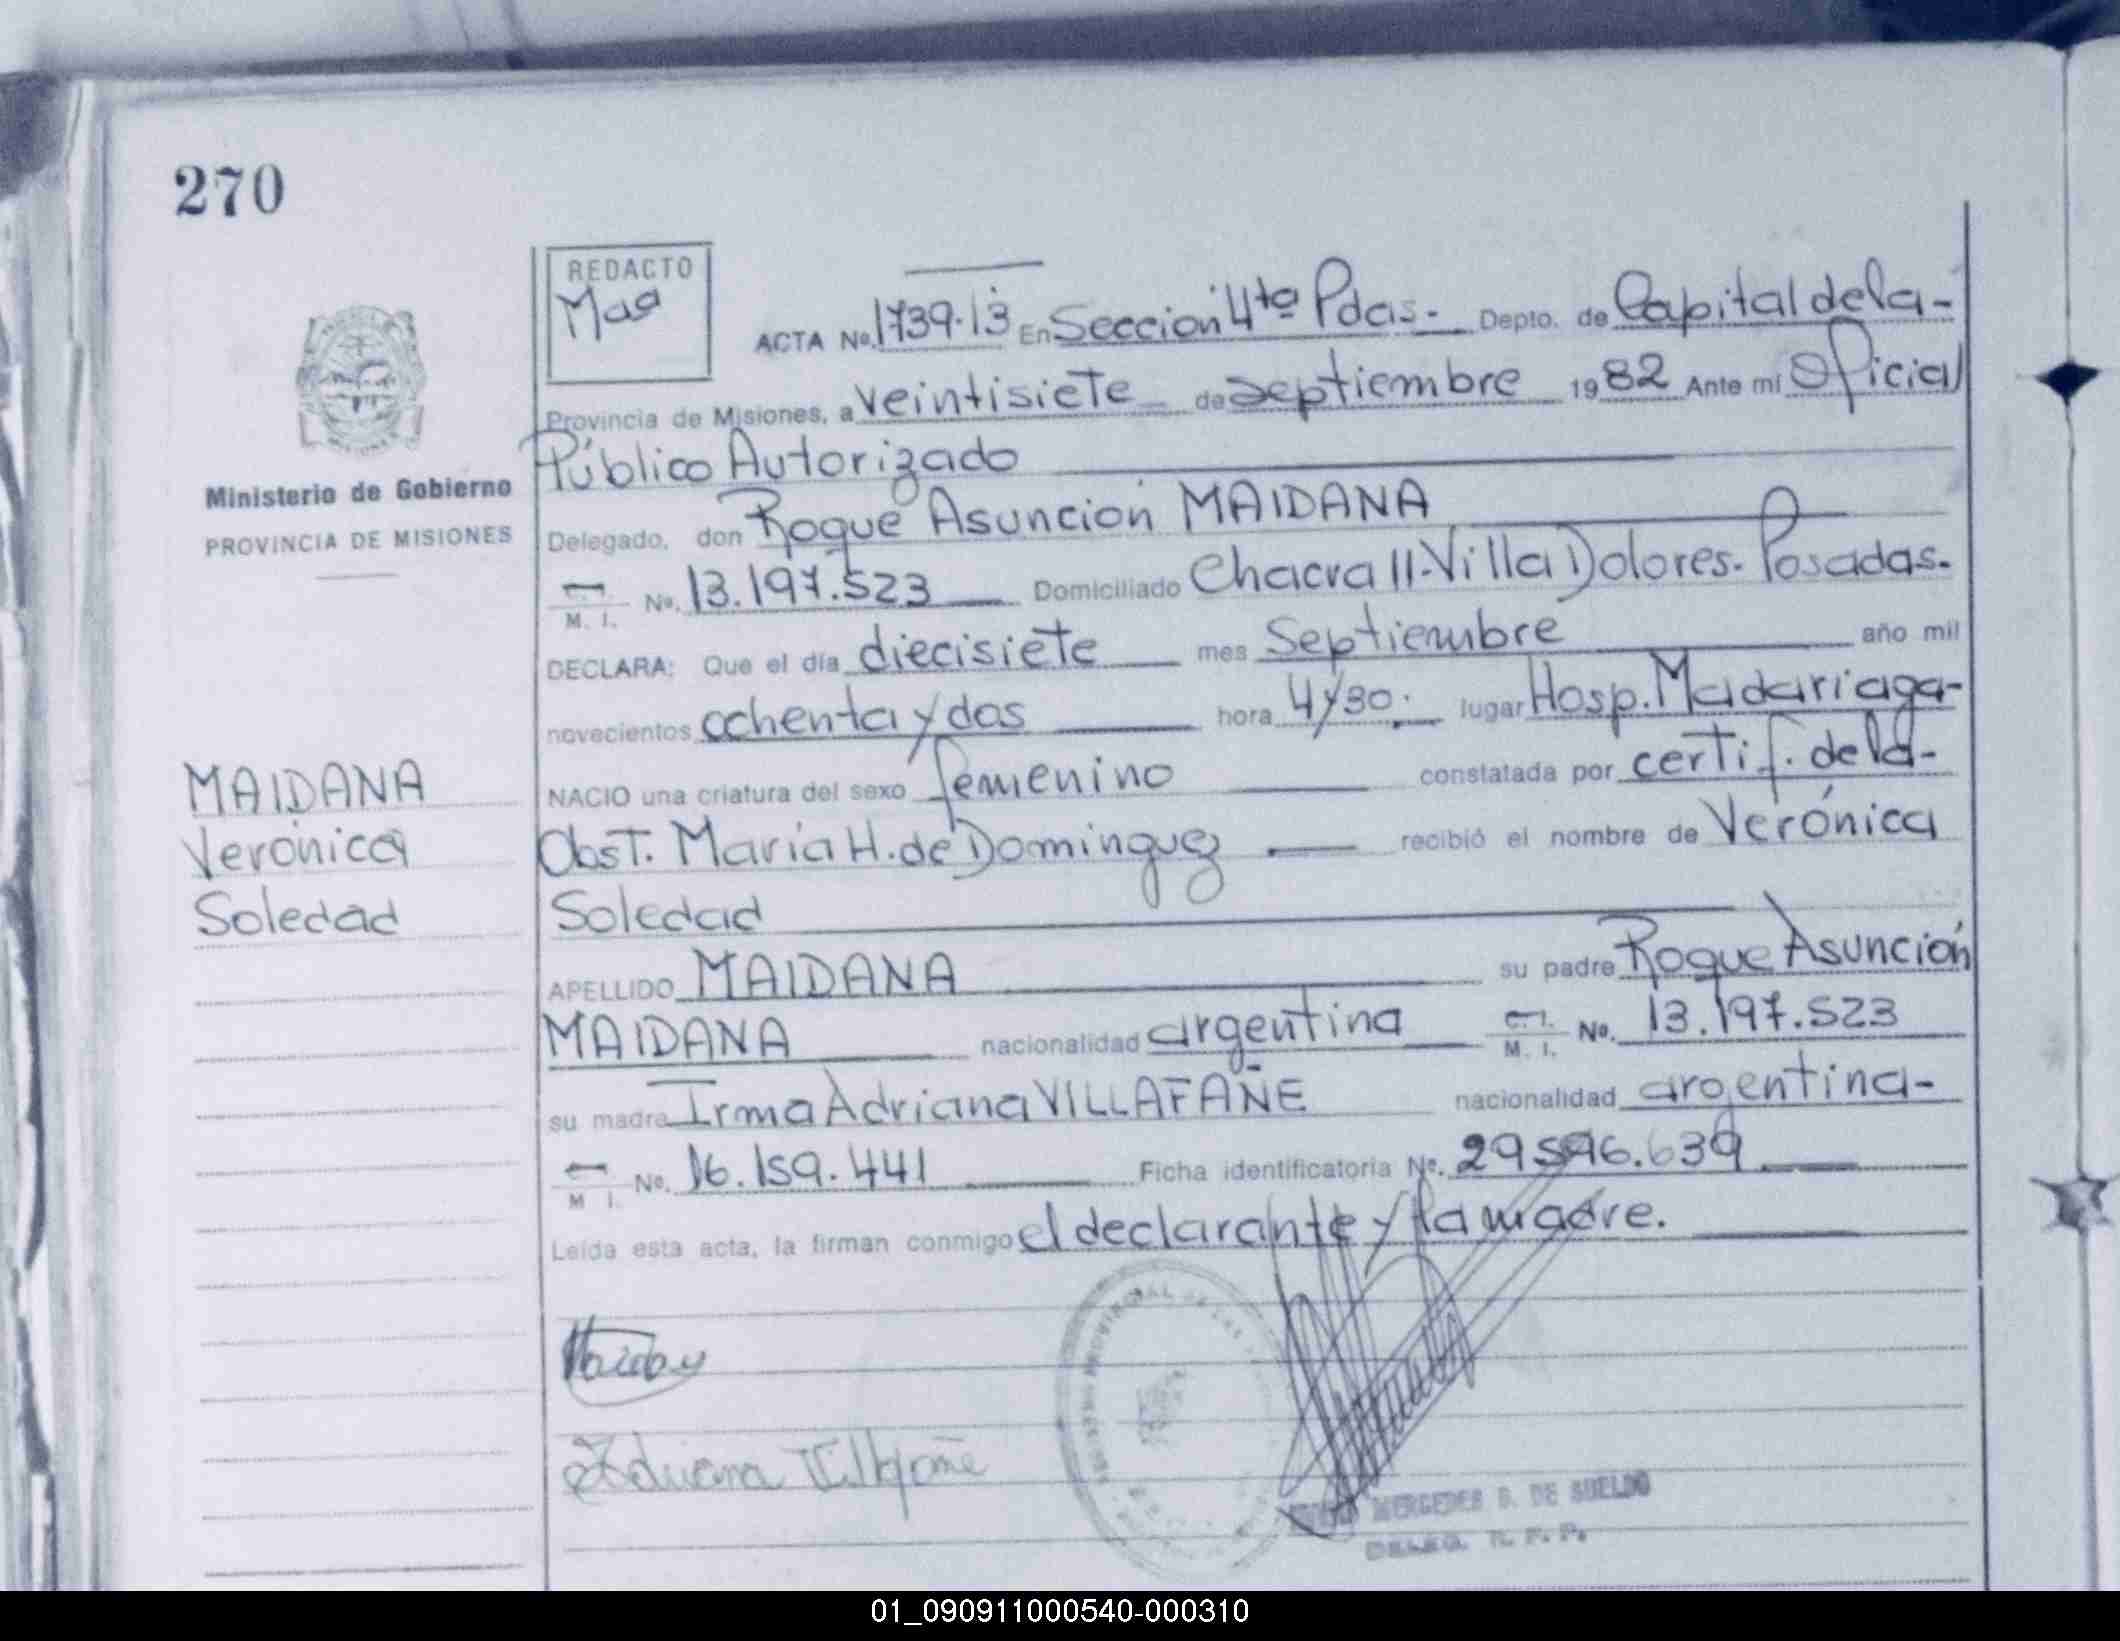 270
REDACTO
Maa
ACTA No. 1739·13 En Sección 4ta Pdas.- Depto. de Capital de la-
Provincia de Misiones, a veintisiete de septiembre 1982 Ante mí Oficial
Público Autorizado
Ministerio de Gobierno
PROVINCIA DE MISIONES
Delegado, don Roque Asunción MAIDANA
M. I. No. 13.197.523 Domiciliado Chacra 11-Villa Dolores. Posadas.
DECLARA: Que el día diecisiete mes Septiembre año mil
novecientos ochenta y dos hora 4y30. lugar Hosp. Madariaga-
NACIO una criatura del sexo femenino constatada por certif. de la-
Obst. María H. de Dominguez recibió el nombre de Verónica
Soledad
MAIDANA
Verónica
Soledad
APELLIDO MAIDANA su padre Roque Asunción
MAIDANA nacionalidad argentina C. I. M. I. No. 13.197.523
su madre Irma Adriana VILLAFAÑE nacionalidad argentina-
M I. No. 16.159.441 Ficha identificatoria No. 29596.639
Leída esta acta, la firman conmigo el declarante y la madre.
Adriana Villafañe
MERCEDES B. DE SUELDO
DELEG. R. P. P.
01_090911000540-000310